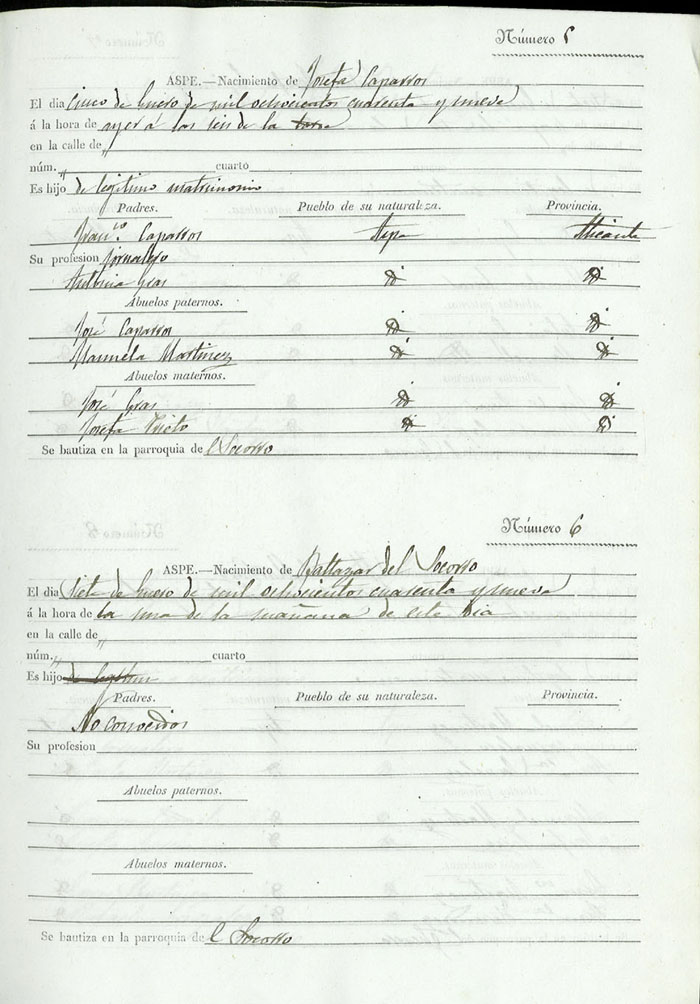 Número 5
ASPE.—Nacimiento de Josefa Caparros
El dia cinco de Enero de mil ochocientos cuarenta y nueve
á la hora de ayer á las seis de la tarde
en la calle de „
núm. „ cuarto
Es hijo de legitimo matrimonio
Padres. Pueblo de su naturaleza. Provincia.
Fran.co Caparros Aspe Alicante
Su profesion jornalero
Antonia Gras Di Di
Abuelos paternos.
José Caparros Di Di
Manuela Martinez Di Di
Abuelos maternos.
José Gras Di Di
Josefa Prieto Di Di
Se bautiza en la parroquia de l Socorro
Número 6
ASPE.—Nacimiento de Baltazar del Socorro
El dia Siete de Enero de mil ochocientos cuarenta y nueve
á la hora de la una de la mañana de este dia
en la calle de „
núm. „ cuarto
Es hijo de legitimo
Padres. Pueblo de su naturaleza. Provincia.
No conocidos
Su profesion
Abuelos paternos.
Abuelos maternos.
Se bautiza en la parroquia de l Socorro